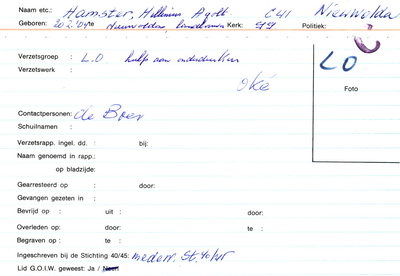 Naam etc.: Hamster, Hillinius Agolt C41 Nieuwolda
Geboren: 20.2.04 te Nieuwolda, landbouwer Kerk: Politiek:
Verzetsgroep : L.O hulp aan onderduikers LO
Verzetswerk :
oké
Foto
Contactpersonen: de Boer
Schuilnamen :
Verzetsrapp. ingel. dd. : bij:
Naam genoemd in rapp.:
op bladzijde:
Gearresteerd op : door:
Gevangen gezeten in :
Bevrijd op : uit : door:
Overleden op: door: te :
Begraven op : te :
Ingeschreven bij de Stichting 40/45: medew. St. 40/45
Lid G.O.I.W. geweest: Ja / Neen